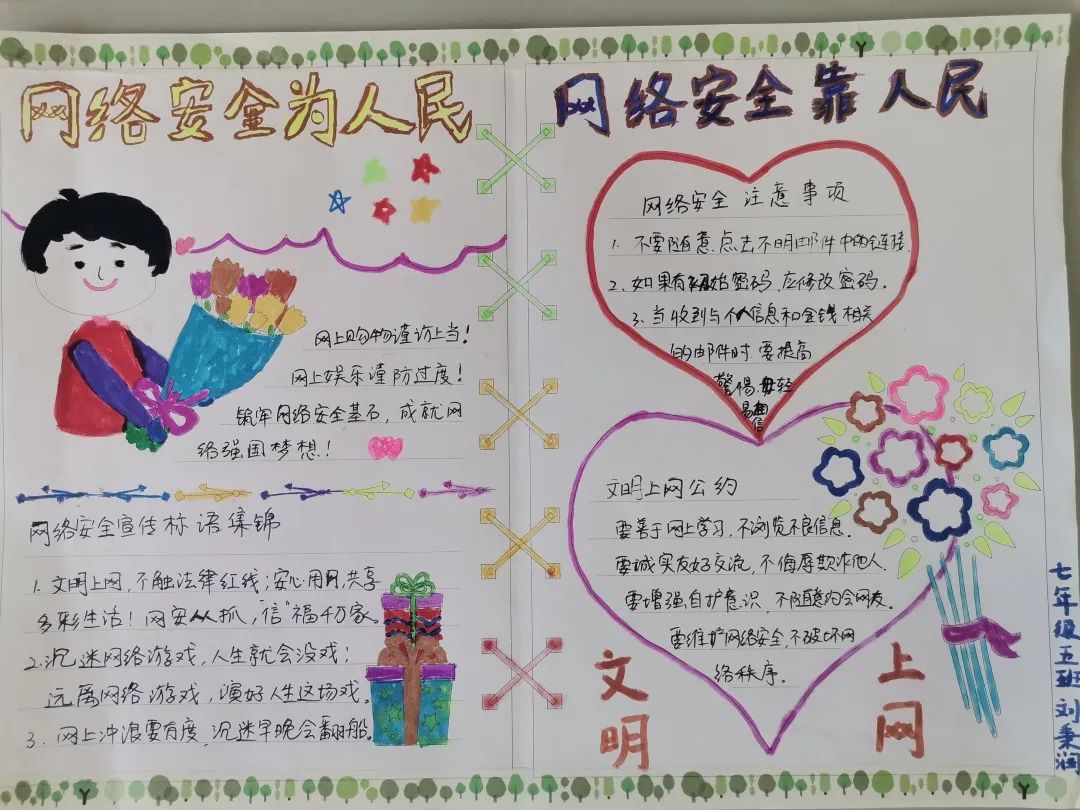 网络安全为人民
网上购物谨访上当!
网上娱乐谨防过度!
筑牢网络安全基石,成就网
络强国梦想!
网络安全宣传标语集锦
1.文明上网,不触法律红线;安心用网,共享
多彩生活!网安人人抓,"信"福千万家。
2.沉迷网络游戏,人生就会没戏;
远离网络游戏,演好人生这场戏。
3.网上冲浪要有度,沉迷早晚会翻船。
网络安全靠人民
网络安全注意事项
1.不要随意点击不明邮件中的链接.
2.如果有初始密码,应修改密码。
3.当收到与个人信息和金钱相关
的邮件时,要提高
警惕,毋轻
易相
信
文明上网公约
要善于网上学习,不浏览不良信息.
要诚实友好交流,不侮辱欺诈他人.
要增强自护意识,不随意约会网友.
要维护网络安全,不破坏网
络秩序.
文明
上网
七年级五班刘秉润